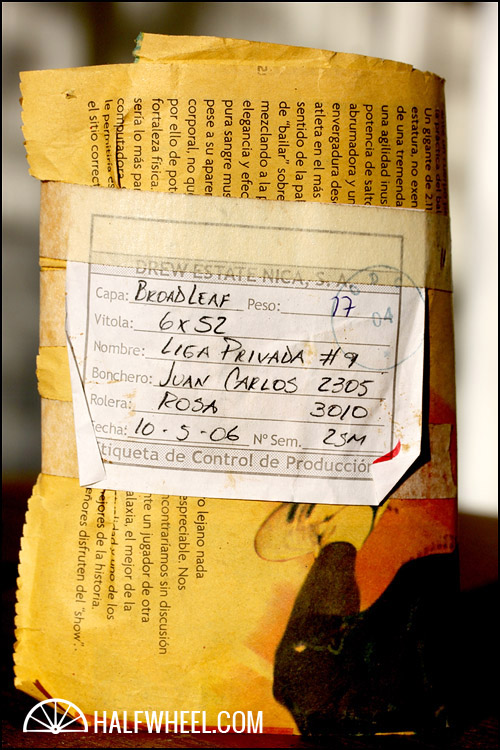 de una tremenda
una agilidad inus
potencia de salto
abrumadora y un
envergadura des
atleta en el más
sentido de la pal
de "bailar" sobre
mezclando a la p
elegancia y efec
pura sangre mus
pese a su apare
corporal, no qu
por ello de pot
fortaleza física.
sería lo más par
computadora
le permitiría es
el sitio correct
DREW ESTATE NICA, S. A.
Capa: BROADLEAF Peso: 17
Vitola: 6x52
Nombre: LIGA PRIVADA #9
Bonchero: JUAN CARLOS 2305
Rolera: ROSA 3010
echa: 10-5-06 N° Sem. 25M
tiqueta de Control de Producción
04
ro lejano nada
espreciable. Nos
ncontraríamos sin discusión
nte un jugador de otra
alaxia, el mejor de la
y uno de los
ejores de la historia.
eñores disfruten del "show".
HALFWHEEL.COM